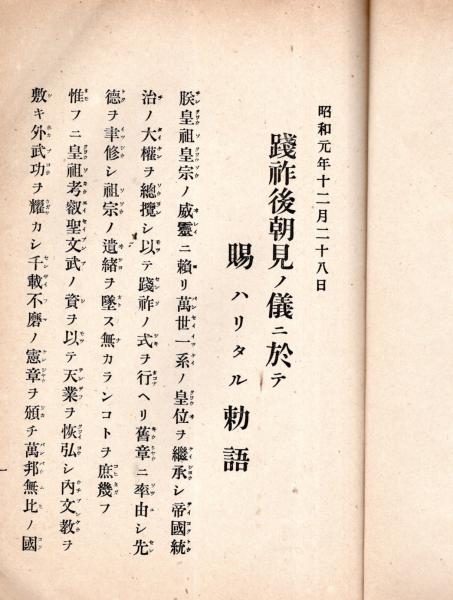 昭和元年十二月二十八日
踐祚後朝見ノ儀ニ於テ
賜ハリタル勅語
朕皇祖皇宗ノ威靈ニ賴リ萬世一系ノ皇位ヲ繼承シ帝國統
治ノ大權ヲ總攬シ以テ踐祚ノ式ヲ行ヘリ舊章ニ率由シ先
德ヲ聿修シ祖宗ノ遺緖ヲ墜ス無カランコトヲ庶幾フ
惟フニ皇祖考叡聖文武ノ資ヲ以テ天業ヲ恢弘シ內文敎ヲ
敷キ外武功ヲ耀カシ千載不磨ノ憲章ヲ頒チ萬邦無比ノ國